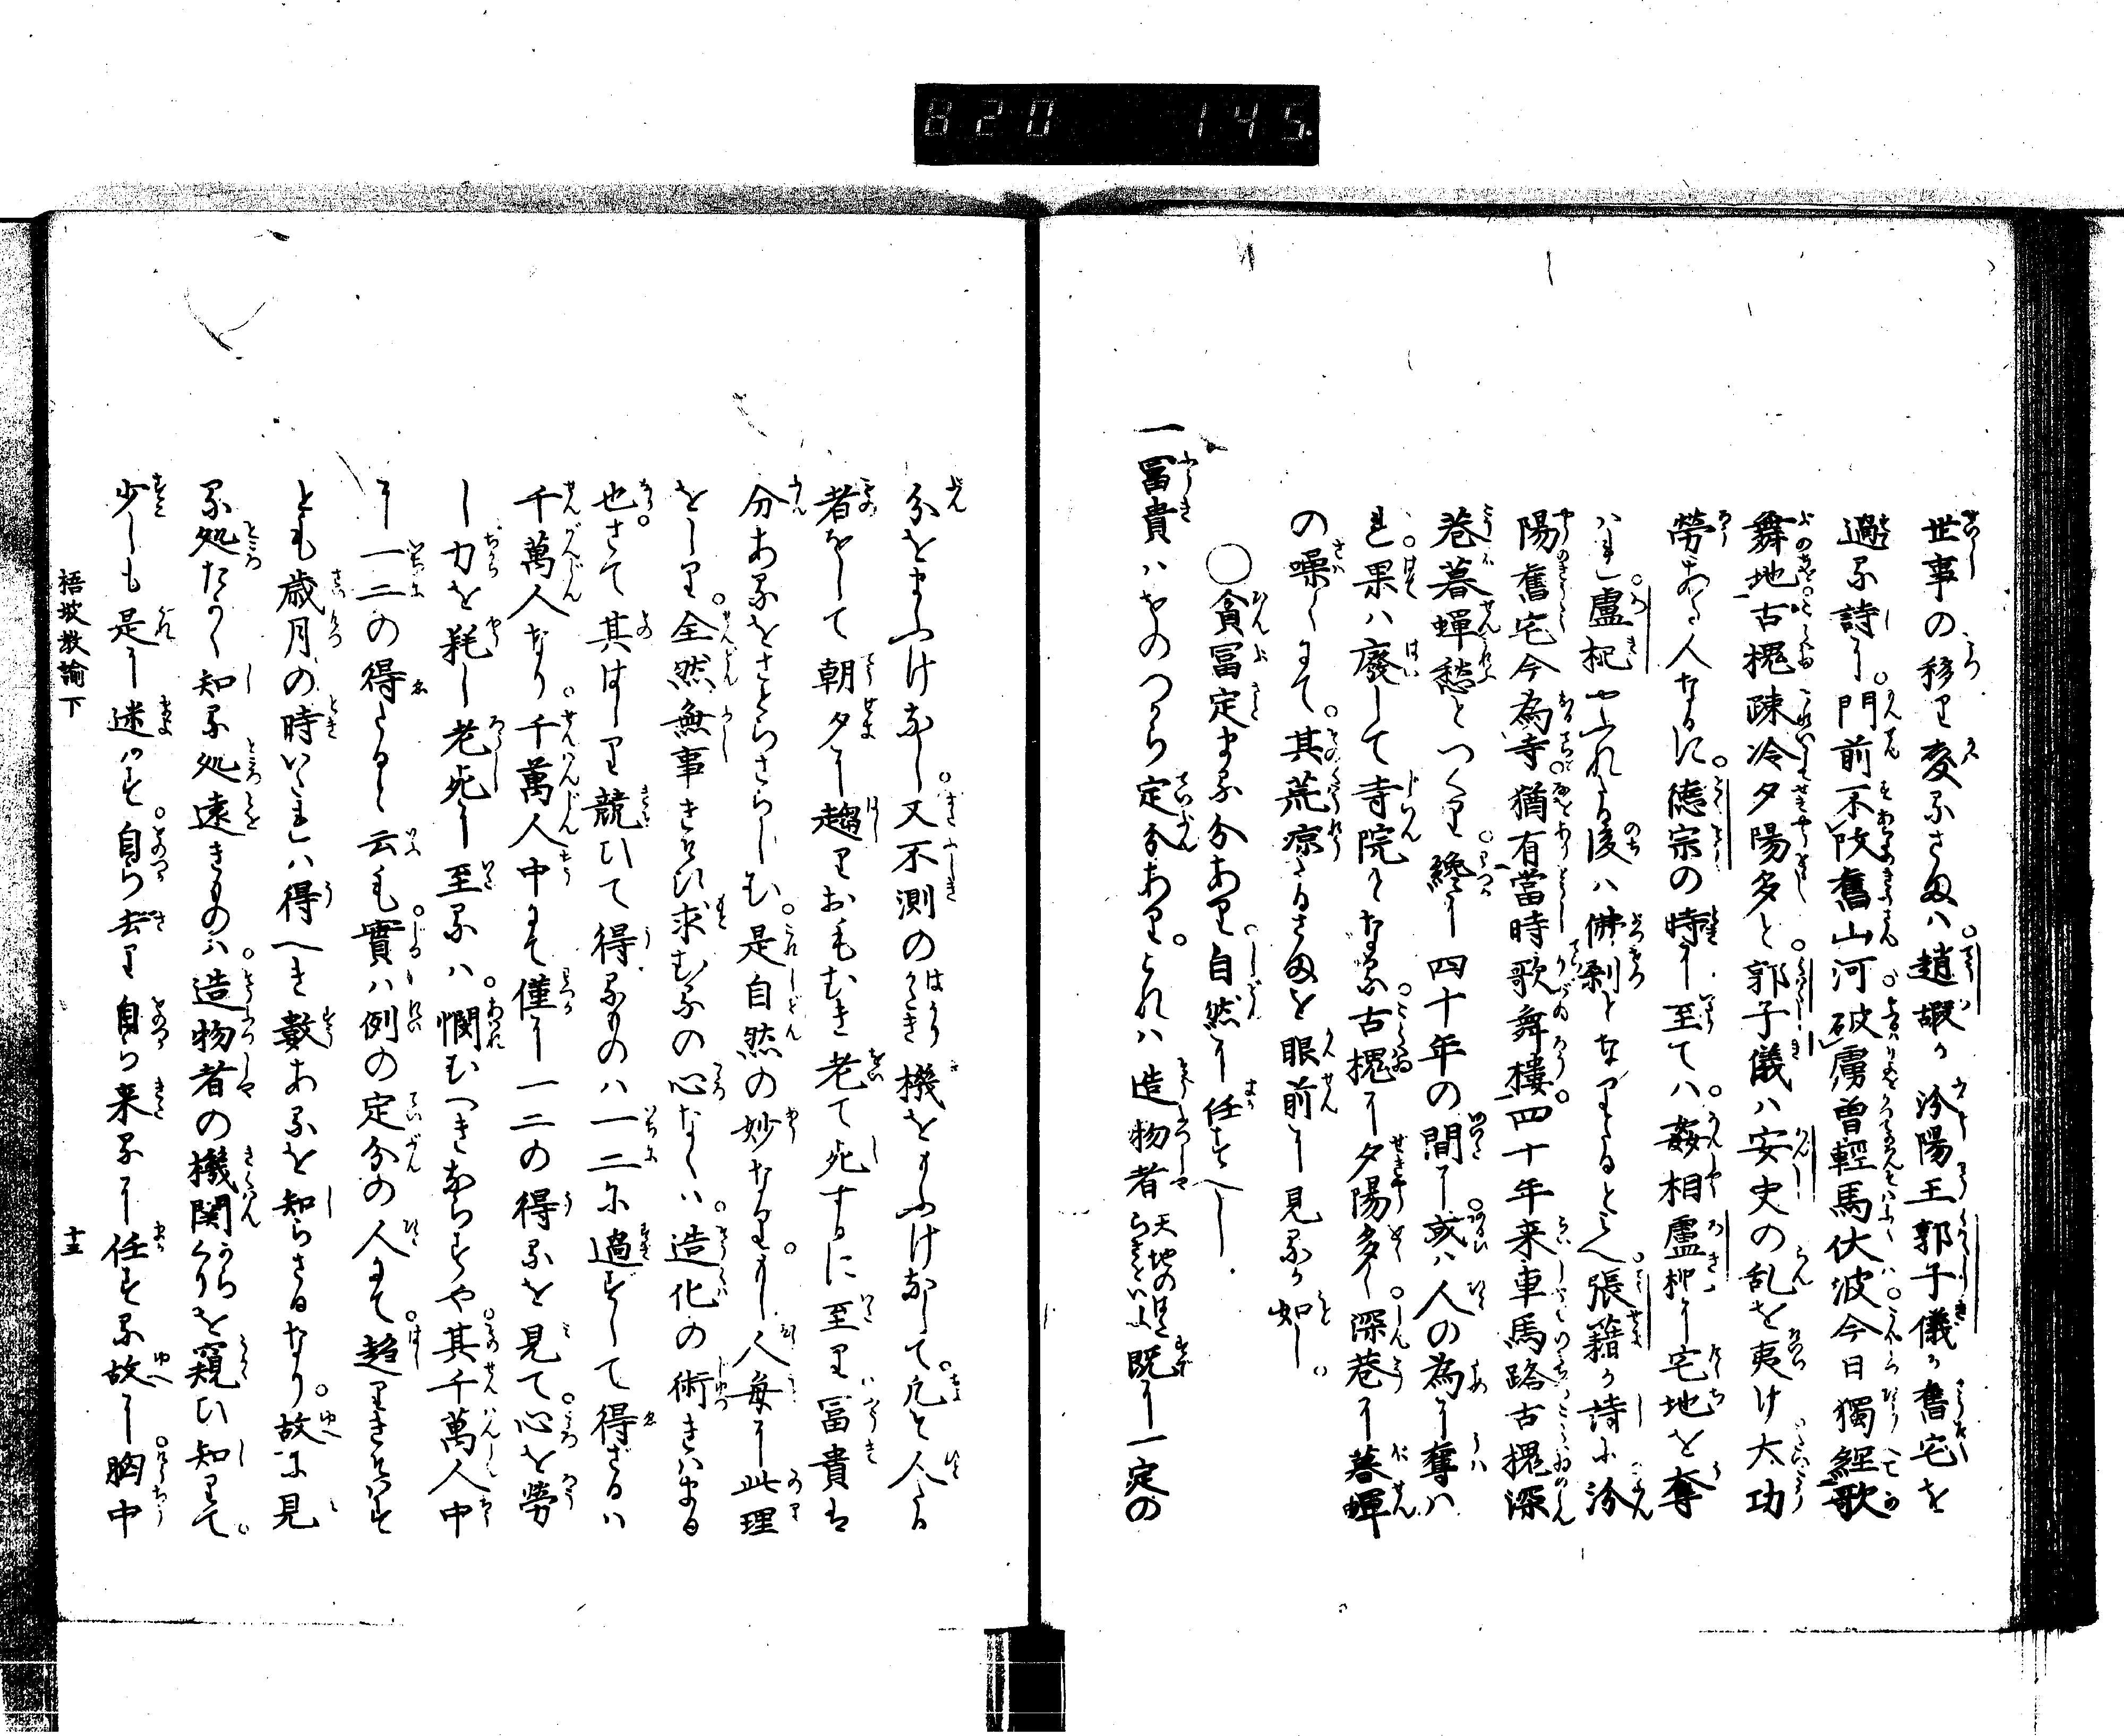 820 145
世事の移り変るさまハ。趙嘏か汾陽王郭子儀か舊宅を
過る詩に。門前不改舊山河破虜曽輕馬伏波今日獨經歌
舞地古槐疎冷夕陽多と。郭子儀ハ安史の乱を夷け大功
勞ある人なるに。徳宗の時に至てハ。姦相盧杞に宅地を奪
ハれ。盧杞やふれたる後ハ佛刹となりたると見へ。張籍か詩に汾
陽舊宅今為寺。猶有當時歌舞樓。四十年来車馬路古槐深
巷暮蟬愁とつくり。纔に四十年の間に。或ハ人の為に奪ハ
れ。果ハ廢して寺院となる。古槐に夕陽多く。深巷に暮蟬
の噪くまて。其荒凉たるさまを眼前に見るか如し。
○貧冨定まる分あり。自然に任すへし
一冨貴ハをのつから定分あり。これハ造物者天地のはたらきをいふ既に一定の
分をまふけなし。又不測の機をまふけなして。凡そ人たる
者をして朝夕に趨りおもむき老て死するに至り冨貴は
分あるをさとらさらしむ。是自然の妙なり。もし人毎に此理
をしり。全然無事きそひ求むるの心なくハ。造化の術きハまる
也。さて其はしり競ひて得るものハ一二に過すして得ざるハ
千萬人なり。千萬人中にて僅に一二の得るを見て。心を勞
し力を耗し老死に至るハ。憫むへきならすや。其千萬人中
に一二の得たると云も。實ハ例の定分の人にて。趨りきそハす
とも歳月の時いたれハ得へき数あるを知らさるなり。故に見
る処たかく知る処遠きものハ。造物者の機関からくりを窺ひ知りて。
少しも是に迷ハす。自ら去り自ら来るに任する故に。胸中
梧坡教諭下 十五